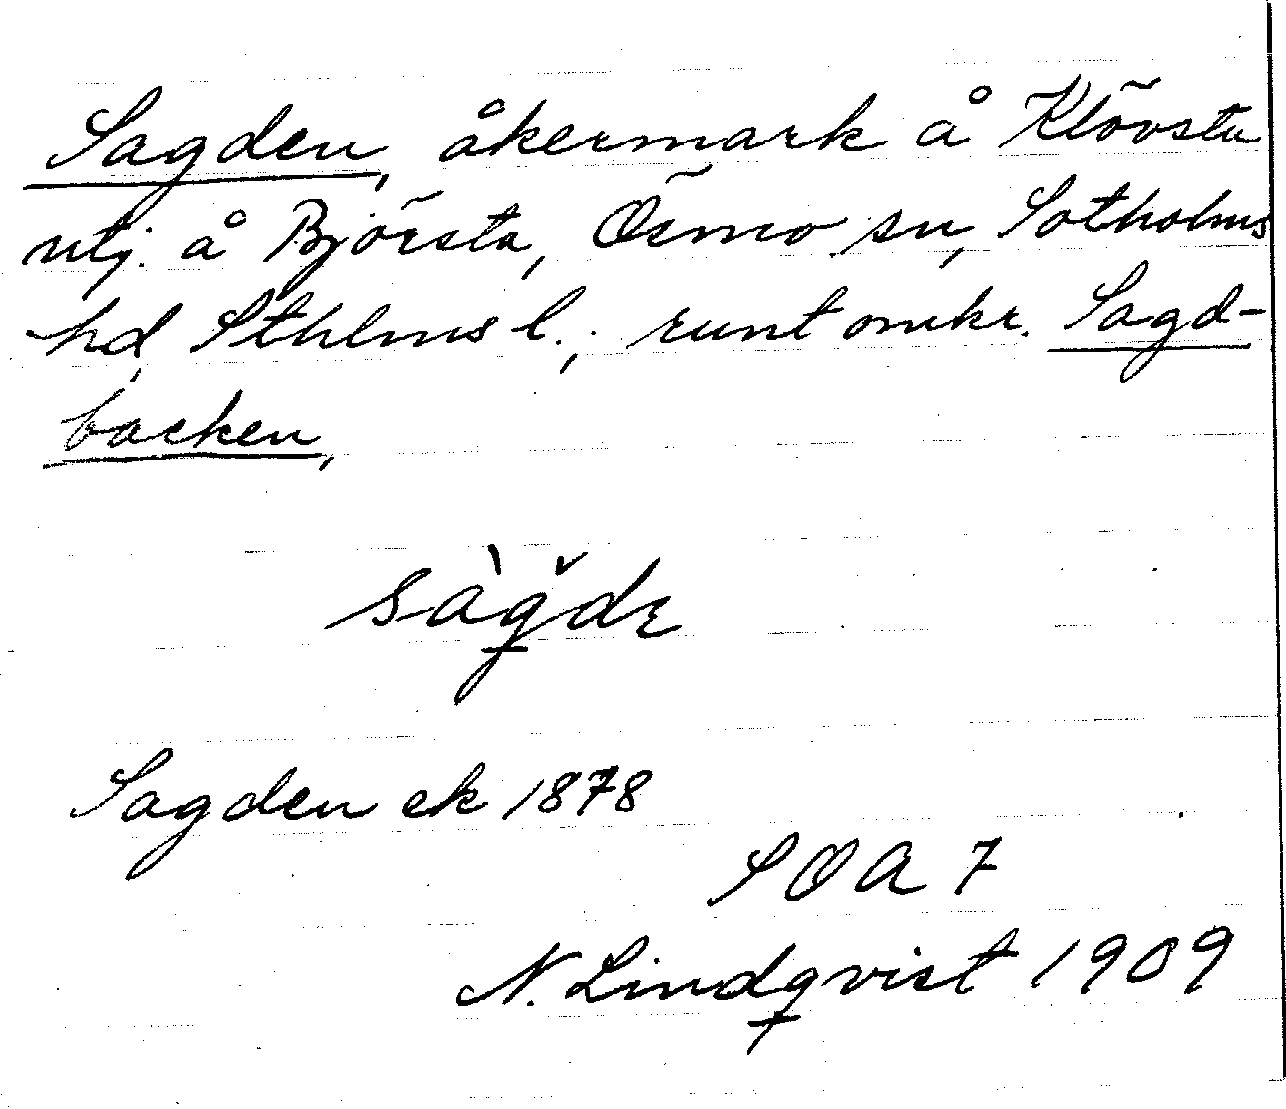 Sagden, åkermark å Klövsta
utj. å Björsta, Ösmo sn, Sotholms
hd, Sthlms l.; runt omkr. Sagd-
backen,
sàǧdɛ
Sagden ek 1878
SOA 7
N. Lindqvist 1909